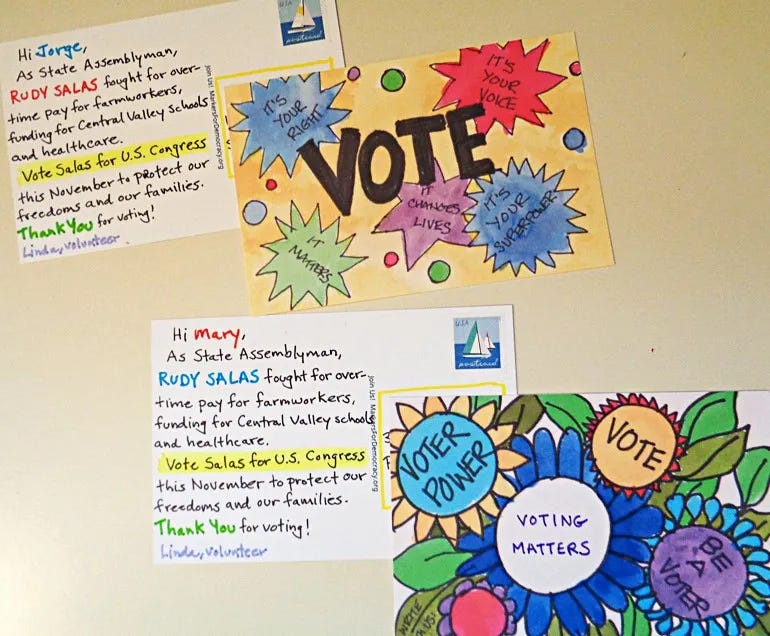 Hi Jorge,
As State Assemblyman,
RUDY SALAS fought for over-
time pay for farmworkers,
funding for Central Valley Schools
and healthcare.
Vote Salas for U.S. Congress
this November to protect our
freedoms and our families.
Thank You for voting!
Linda, volunteer
postcard
Join Us! MarkersForDemocracy.org
IT'S
YOUR
RIGHT
IT'S
YOUR
VOICE
VOTE
IT
CHANGES
LIVES
IT'S
YOUR
SUPERPOWER
IT
MATTERS
Hi Mary,
As State Assemblyman,
RUDY SALAS fought for over-
time pay for farmworkers,
funding for Central Valley schools
and healthcare.
Vote Salas for U.S. Congress
this November to protect our
freedoms and our families.
Thank You for voting!
Linda, volunteer
USA
postcard
Join Us! MarkersForDemocracy.org
VOTER
POWER
VOTE
VOTING
MATTERS
BE
A
VOTER
WRITE